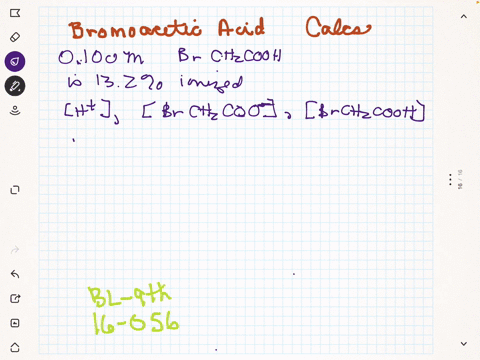 Bromoacetic Acid Calcs
0.100 m BrCH2COOH
is 13.2% ionized
[H+], [BrCH2COO-], [BrCH2COOH]
BL-9th
16-056
16 / 16